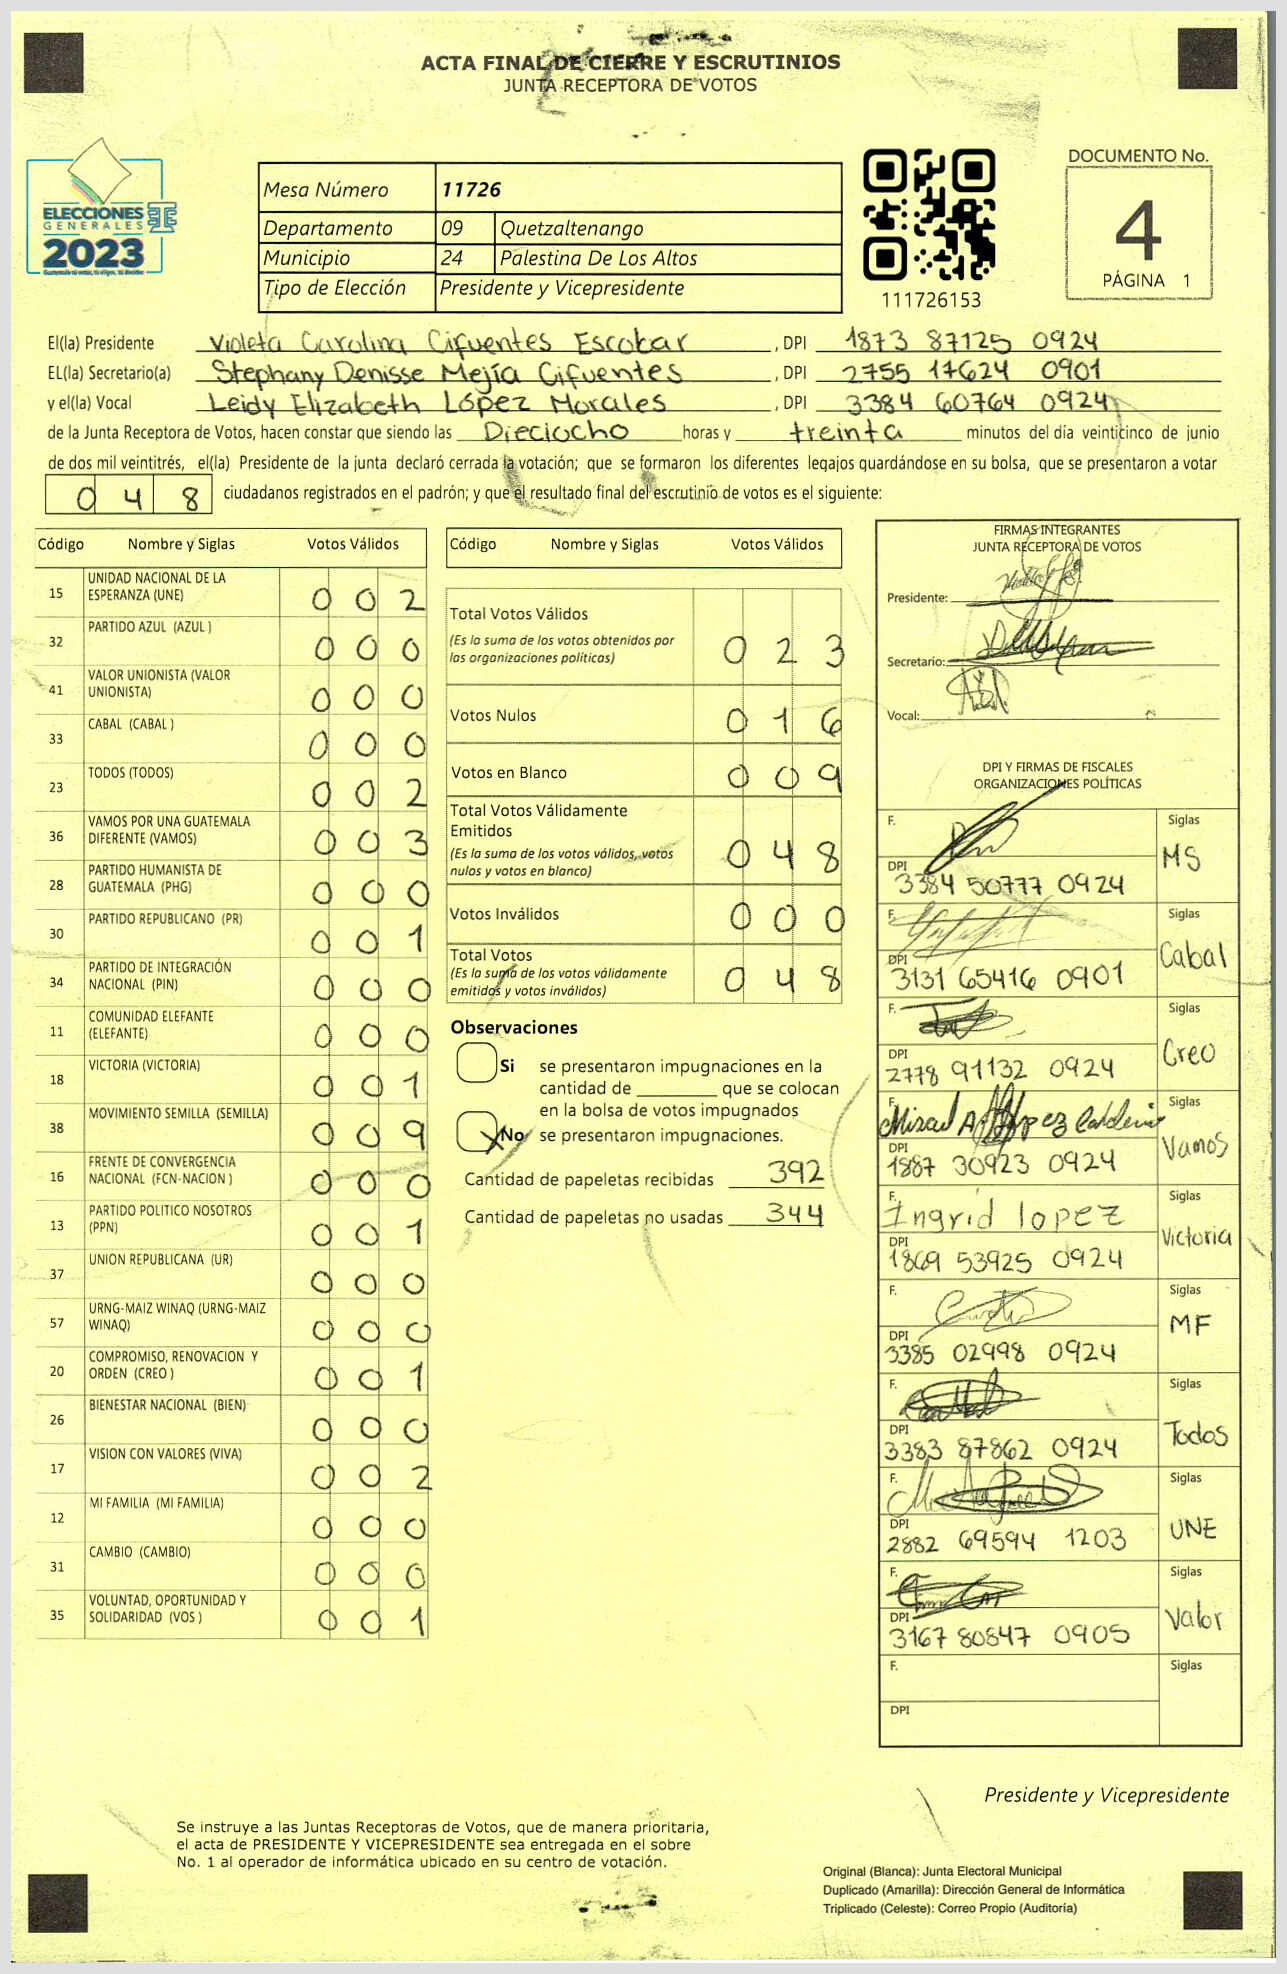 ACTA FINAL DE CIERRE Y ESCRUTINIOS
JUNTA RECEPTORA DE VOTOS
ELECCIONES
GENERALES
2023
Mesa Número 11726
Departamento 09 Quetzaltenango
Municipio 24 Palestina De Los Altos
Tipo de Elección Presidente y Vicepresidente
111726153
DOCUMENTO No.
4
PÁGINA 1
El(la) Presidente Violeta Carolina Cifuentes Escobar , DPI 1873 87125 0924
EL(la) Secretario(a) Stephany Denisse Mejía Cifuentes , DPI 2755 17624 0901
y el(la) Vocal Leidy Elizabeth López Morales , DPI 3384 60764 0924
de la Junta Receptora de Votos, hacen constar que siendo las Dieciocho horas y treinta minutos del día veinticinco de junio
de dos mil veintitrés, el(la) Presidente de la junta declaró cerrada la votación; que se formaron los diferentes legajos guardándose en su bolsa, que se presentaron a votar
0 4 8 ciudadanos registrados en el padrón; y que el resultado final del escrutinio de votos es el siguiente:
Código Nombre y Siglas Votos Válidos
15 UNIDAD NACIONAL DE LA ESPERANZA (UNE) 0 0 2
32 PARTIDO AZUL (AZUL ) 0 0 0
41 VALOR UNIONISTA (VALOR UNIONISTA) 0 0 0
33 CABAL (CABAL ) 0 0 0
23 TODOS (TODOS) 0 0 2
36 VAMOS POR UNA GUATEMALA DIFERENTE (VAMOS) 0 0 3
28 PARTIDO HUMANISTA DE GUATEMALA (PHG) 0 0 0
30 PARTIDO REPUBLICANO (PR) 0 0 1
34 PARTIDO DE INTEGRACIÓN NACIONAL (PIN) 0 0 0
11 COMUNIDAD ELEFANTE (ELEFANTE) 0 0 0
18 VICTORIA (VICTORIA) 0 0 1
38 MOVIMIENTO SEMILLA (SEMILLA) 0 0 9
16 FRENTE DE CONVERGENCIA NACIONAL (FCN-NACION ) 0 0 0
13 PARTIDO POLITICO NOSOTROS (PPN) 0 0 1
37 UNION REPUBLICANA (UR) 0 0 0
57 URNG-MAIZ WINAQ (URNG-MAIZ WINAQ) 0 0 0
20 COMPROMISO, RENOVACION Y ORDEN (CREO ) 0 0 1
26 BIENESTAR NACIONAL (BIEN) 0 0 0
17 VISION CON VALORES (VIVA) 0 0 2
12 MI FAMILIA (MI FAMILIA) 0 0 0
31 CAMBIO (CAMBIO) 0 0 0
35 VOLUNTAD, OPORTUNIDAD Y SOLIDARIDAD (VOS ) 0 0 1
Código Nombre y Siglas Votos Válidos
Total Votos Válidos
(Es la suma de los votos obtenidos por
las organizaciones políticas) 0 2 3
Votos Nulos 0 1 6
Votos en Blanco 0 0 9
Total Votos Válidamente
Emitidos
(Es la suma de los votos válidos, votos
nulos y votos en blanco) 0 4 8
Votos Inválidos 0 0 0
Total Votos
(Es la suma de los votos válidamente
emitidos y votos inválidos) 0 4 8
Observaciones
Si se presentaron impugnaciones en la
cantidad de ________ que se colocan
en la bolsa de votos impugnados
X No se presentaron impugnaciones.
Cantidad de papeletas recibidas 392
Cantidad de papeletas no usadas 344
FIRMAS INTEGRANTES
JUNTA RECEPTORA DE VOTOS
Presidente:
Secretario:
Vocal:
DPI Y FIRMAS DE FISCALES
ORGANIZACIONES POLÍTICAS
F. Siglas
DPI 3384 50777 0924 MS
F. Siglas
DPI 3131 65416 0901 Cabal
F. Siglas
DPI 2778 91132 0924 Creo
F. Siglas
DPI 1887 30923 0924 Vamos
F. Ingrid lopez Siglas
DPI 1869 53925 0924 Victoria
F. Siglas
DPI 3385 02998 0924 MF
F. Siglas
DPI 3383 87862 0924 Todos
F. Siglas
DPI 2882 69594 1203 UNE
F. Siglas
DPI 3167 80847 0905 Valor
F. Siglas
DPI
Presidente y Vicepresidente
Se instruye a las Juntas Receptoras de Votos, que de manera prioritaria,
el acta de PRESIDENTE Y VICEPRESIDENTE sea entregada en el sobre
No. 1 al operador de informática ubicado en su centro de votación.
Original (Blanca): Junta Electoral Municipal
Duplicado (Amarilla): Dirección General de Informática
Triplicado (Celeste): Correo Propio (Auditoría)